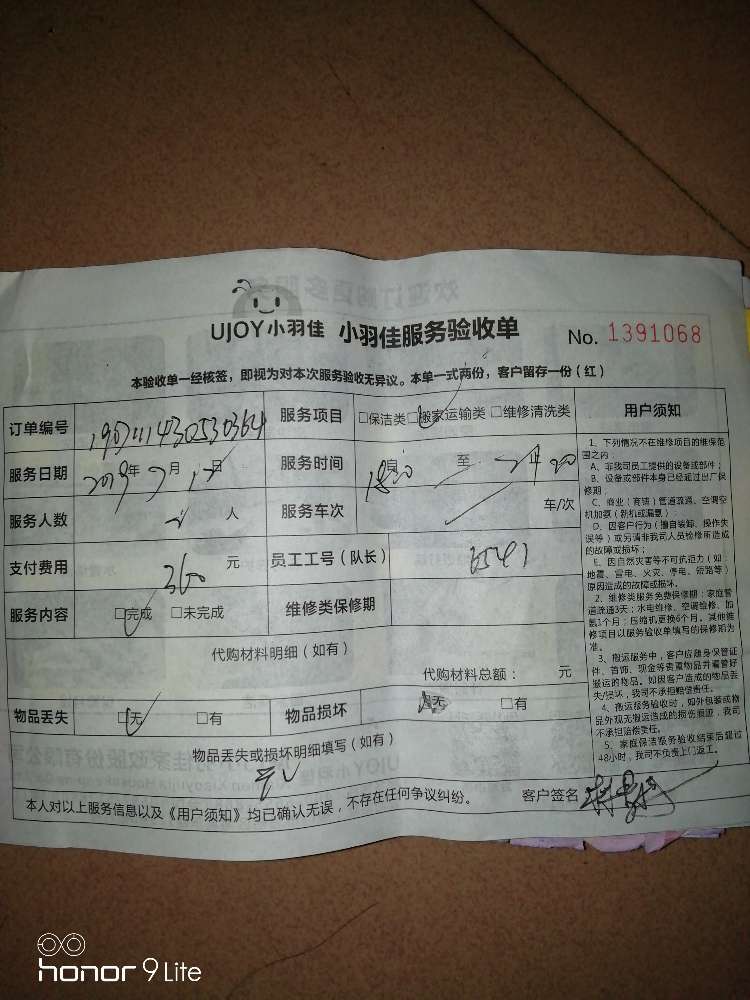 UJOY小羽佳 小羽佳服务验收单 No. 1391068
本验收单一经核签，即视为对本次服务验收无异议。本单一式两份，客户留存一份（红）
订单编号 服务项目 □保洁类 □搬家运输类 □维修清洗类
服务日期 2019年7月 日 服务时间 至
服务人数 人 服务车次 车/次
支付费用 360 元 员工工号（队长） 6541
服务内容 □完成 □未完成 维修类保修期
代购材料明细（如有）
代购材料总额： 元
物品丢失 □无 □有 物品损坏 无 □有
物品丢失或损坏明细填写（如有）
无
本人对以上服务信息以及《用户须知》均已确认无误，不存在任何争议纠纷。 客户签名
用户须知
1、下列情况不在维修项目的维保范
围之内：
A、非我司员工提供的设备或部件；
B、设备或部件本身已经超过出厂保
修期；
C、商业（商铺）管道疏通、空调空
机加氨（新机或漏氨）
D、因客户行为（擅自装卸、操作失
误等）或另请非我司人员检修所造成
的故障或损坏；
E、因自然灾害等不可抗迫力（如：
地震、雷电、火灾、停电、短路等）
原因造成的故障或损坏。
2、维修类服务免费保修期：家庭管
道疏通3天；水电维修、空调检修、加
氨1个月；压缩机更换6个月。其他维
修项目以服务验收单填写的保修期为
准。
3、搬运服务中，客户应随身保管证
件、首饰、现金等贵重物品并看管好
搬运的物品。如因客户造成的物品丢
失/损坏，我司不承担赔偿责任。
4、搬运服务验收后，如外包装或物
品外观无搬运造成的损伤痕迹，我司
不承担赔偿责任。
5、家庭保洁服务验收结束后超过
48小时，我司不负责上门返工。
honor 9 Lite